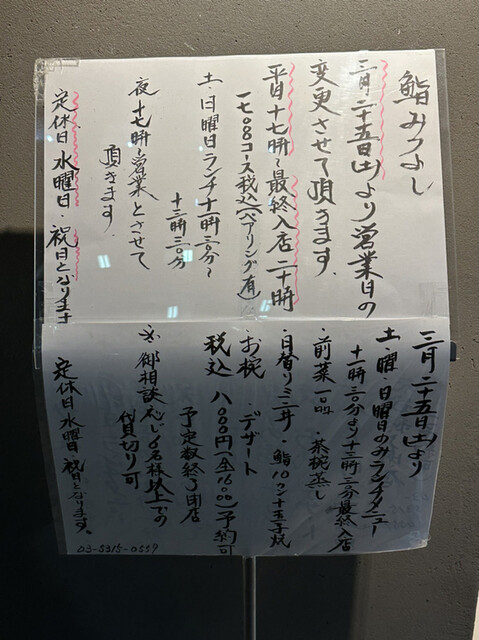 鮨みつよし
三月二十五日(土)より営業日の
変更させて頂きます。
平日 十七時〜最終入店二十時
土・日曜日ランチ十一時三〇分〜
十三時三〇分
夜 十七時〜営業とさせて
頂きます。
定休日 水曜日・祝日となります
三月二十五日(土)より
土・曜・日曜日のみランチメニュー
十一時三〇分より十三時三〇分最終入店
・前菜一品 ・茶椀蒸し
・日替りミニ丼・鮨10カン+玉子
・お椀 ・デザート
税込 八〇〇〇円 予約可
予定数終了閉店
御相談応じ6名様以上での
貸切り可
定休日 水曜日 祝日となります。
03-5315-0559